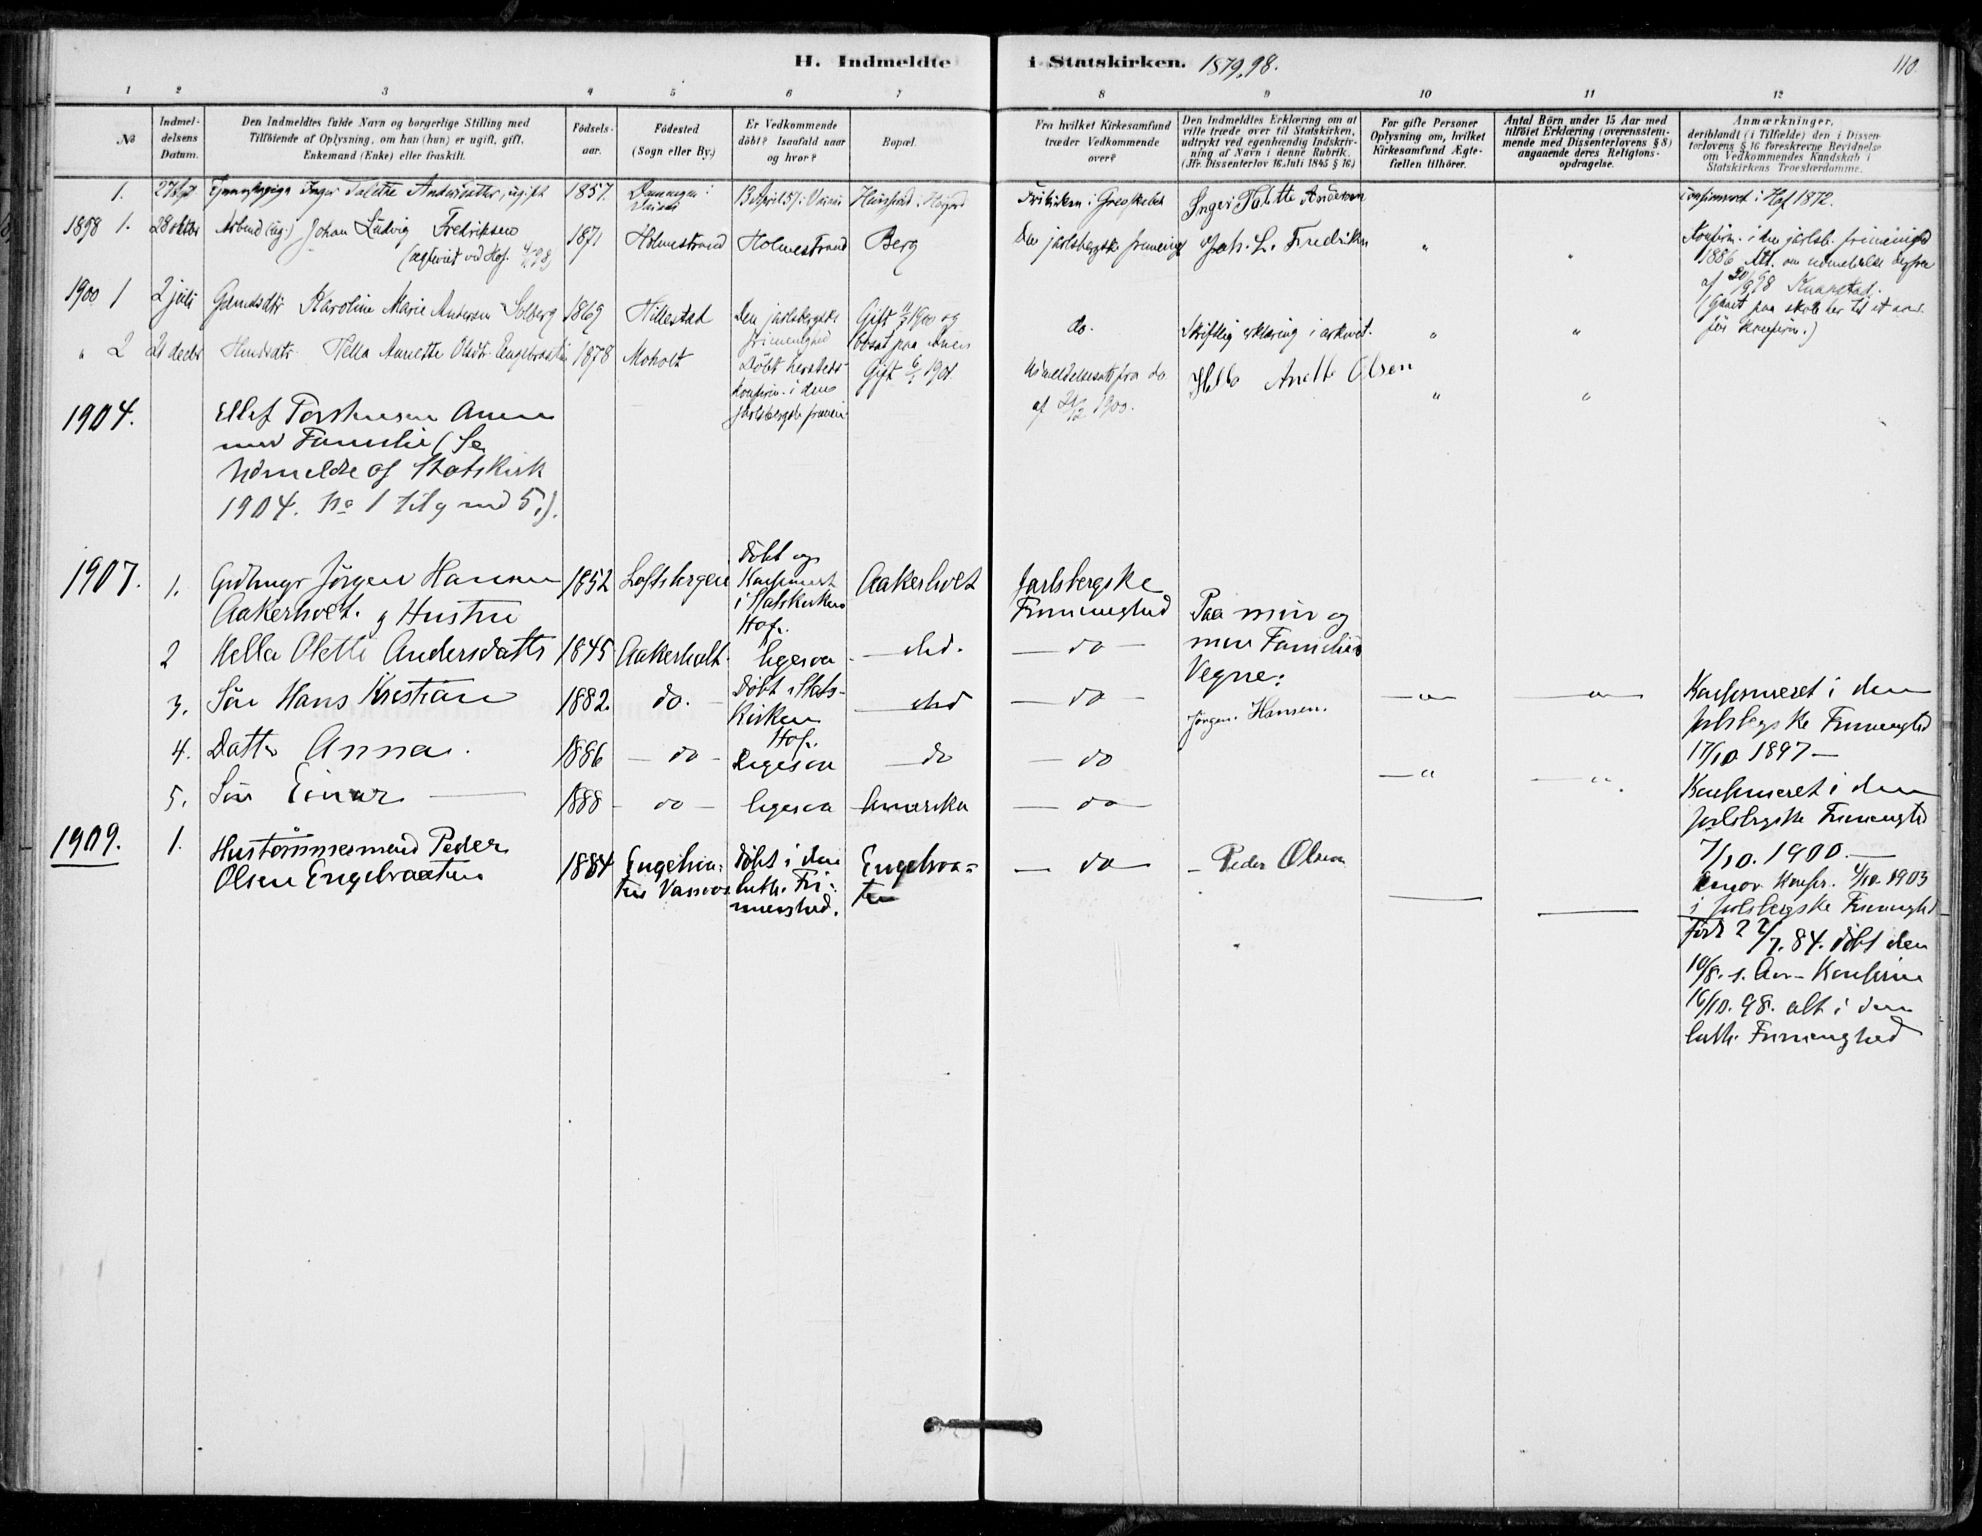 H. Indmeldte i Statskirken. 1879.98.
110.
1 2 3 4 5 6 7 8 9 10 11 12
No
Indmel-
delsens
Datum.
Den Indmeldtes fulde Navn og borgerlige Stilling med
Tilföiende af Oplysning, om han (hun) er ugift, gift,
Enkemand (Enke) eller fraskilt.
Födsels-
aar.
Födested
(Sogn eller By.)
Er Vedkommende
döbt? Isaafald naar
og hvor?
Bopæl.
Fra hvilket Kirkesamfund
træder Vedkommende
over?
Den Indmeldtes Erklæring om at
ville træde over til Statskirken,
udtrykt ved egenhændig Indskriv-
ning af Navn i denne Rubrik.
(Jfr. Dissenterlov 16. Juli 1845 § 16.)
For gifte Personer
Oplysning om, hvilket
Kirkesamfund Ægte-
fællen tilhörer.
Antal Börn under 15 Aar med
tilföiet Erklæring (overensstem-
mende med Dissenterlovens § 8)
angaaende deres Religions-
opdragelse.
Anmærkninger,
deriblandt (i Tilfælde) den i Dissen-
terlovens § 16 foreskrevne Bevidnelse
om Vedkommendes Kundskab i
Statskirkens Troeslærdomme.
1. Inger Talette Andersdatter, ugift 1857.
13 April 57 i
Frikirken i Grevskabet
Inger Talette Andersen
confirmeret i Hof 1872.
1898 1. 28 oktbr Arbmd (ug.) Johan Ludvig Fredriksen
(ægteviet ved Hof.
1871 Holmestrand Holmestrand Berg
Den jarlsbergske frimenighed
Joh. L. Fredriksen " "
Konfirm. i den jarlsb. frimenighed
1886 Att. om
1900 1 2 juli Gaardsdtr Karoline Marie Andersen Solberg 1869 Hillestad
Den jarlsbergske
frimenighed
Gift 1900 og
bosat paa
do. Skriftlig erklæring i arkivet. " "
(Gaaet paa skole her til et aar
för konfirm.)
" 2 21 decbr Hella Anette Olsdtr. Engebraaten 1878 Moholt
Döbt hersteds
konfirm. i den
jarlsbergske frimen.
Gift 6/1 1901
Udmeldelsesatt fra do
af 21/12 1900.
Hella Anette Olsen
" "
1904.
Ellef Torstensen
med Familie (Se
Udmeldte af Statskirk
1904. No 1 til og med 5.).
1907. 1. Grdbrugr Jörgen Hansen
Aakerholt. og Hustru
1852
Döbt og
Konfirmert
i Statskirken
Hof.
Aakerholt
Jarlsbergske
Frimenighed
Paa min og
min Families
Vegne:
Jörgen Hansen.
2 Hella Olette Andersdatter 1845 Aakerholt. ligesaa — ibd. — do —
3. Sön Hans Kristian 1882. do.
Döbt i Stats-
kirken
Hof.
— ibd — do — — " — — " —
Konfirmeret i den
jarlsbergske Frimenighed
17/10 1897 —
4. Datter Anna. 1886 — do — Ligesaa — do — do — " — — " —
Konfirmeret i den
jarlsbergske Frimenighed
7/10. 1900. —
5. Sön Einar — 1888 — do — ligesaa Amerika — do —
Einar konfir. 4/10. 1903
i jarlsbergske Frimenighed
1909. 1. Hustömmermand Peder
Olsen Engebraaten
1884
Engebraa-
ten Vassaas
Döbt i den
luth. Fri-
menighed.
Engebraa-
ten
— do — Peder Olsen
Född 22/7. 84. döbt den
10/8. s. Aar — Konfirm
16/10. 98. alt i den
luth. Frimenighed